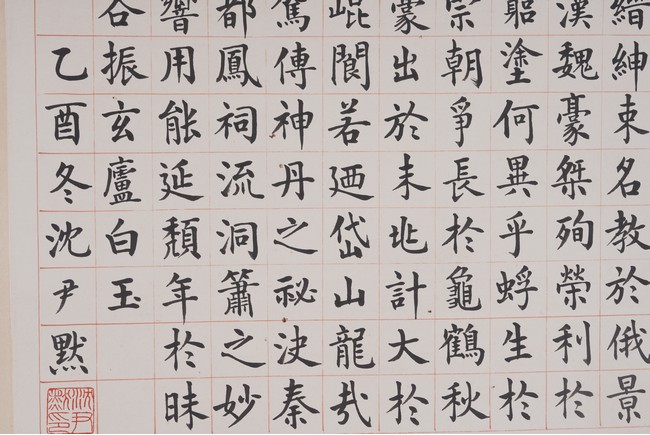 縉紳束名教於俄景
漢魏豪桀殉榮利於
軀塗何異乎蜉生於
崇朝爭長於龜鶴秋
出於未兆計大於
崐閬若迺岱山龍
傳神丹之祕決秦
都鳳祠流洞簫之妙
響用能延頹年於昧
谷振玄廬白玉
乙酉冬沈尹默
沈尹默印